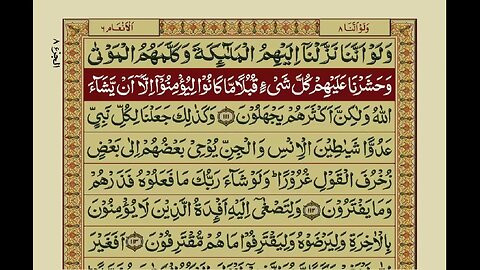 الانعام ٦
ولو اننا ٨
وَلَوْ اَنَّنَا نَزَّلْنَاۤ اِلَيْهِمُ الْمَلٰٓئِكَةَ وَكَلَّمَهُمُ الْمَوْتٰى
وَحَشَرْنَا عَلَيْهِمْ كُلَّ شَیْءٍ قُبُلًا مَّا كَانُوْا لِيُؤْمِنُوْۤا اِلَّاۤ اَنْ يَّشَآءَ
اللّٰهُ وَلٰكِنَّ اَكْثَرَهُمْ يَجْهَلُوْنَ ﴿١١١﴾ وَكَذٰلِكَ جَعَلْنَا لِكُلِّ نَبِیٍّ
عَدُوًّا شَيٰطِيْنَ الْاِنْسِ وَ الْجِنِّ يُوْحِیْ بَعْضُهُمْ اِلٰى بَعْضٍ
زُخْرُفَ الْقَوْلِ غُرُوْرًا ؕ وَلَوْ شَآءَ رَبُّكَ مَا فَعَلُوْهُ فَذَرْهُمْ
وَمَا يَفْتَرُوْنَ ﴿١١٢﴾ وَلِتَصْغٰۤى اِلَيْهِ اَفْـِٕدَةُ الَّذِيْنَ لَا يُؤْمِنُوْنَ
بِالْاٰخِرَةِ وَلِيَرْضَوْهُ وَلِيَقْتَرِفُوْا مَا هُمْ مُّقْتَرِفُوْنَ ﴿١١٣﴾ اَفَغَيْرَ